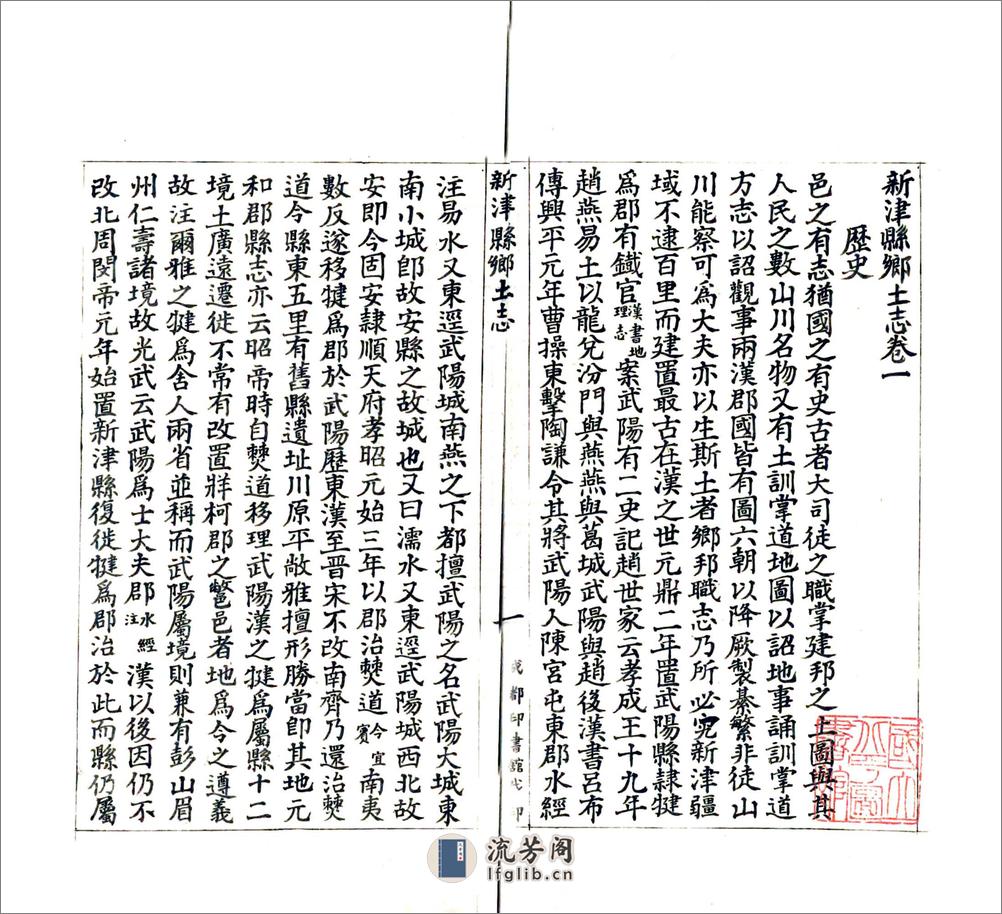 新津縣鄉土志卷一
歷史
邑之有志猶國之有史古者大司徒之職掌建邦之土圖與其
人民之數山川名物又有土訓掌道地圖以詔地事誦訓掌道
方志以詔觀事兩漢郡國皆有圖六朝以降厥製綦繁非徒山
川能察可爲大夫亦以生斯土者鄉邦職志乃所必究新津疆
域不逮百里而建置最古在漢之世元鼎二年置武陽縣隸犍
爲郡有鐵官漢書地理志案武陽有二史記趙世家云孝成王十九年
趙燕易土以龍兌汾門與燕燕與葛城武陽與趙後漢書呂布
傳興平元年曹操東擊陶謙令其將武陽人陳宮屯東郡水經
新津縣鄉土志
一
成都印書館代印
注易水又東逕武陽城南燕之下都擅武陽之名武陽大城東
南小城卽故安縣之故城也又曰濡水又東逕武陽城西北故
安即今固安隸順天府孝昭元始三年以郡治僰道今宜賓南夷
數反遂移犍爲郡於武陽歷東漢至晋宋不改南齊乃還治僰
道今縣東五里有舊縣遺址川原平敞雅擅形勝當卽其地元
和郡縣志亦云昭帝時自僰道移理武陽漢之犍爲屬縣十二
境土廣遠遷徙不常有改置牂柯郡之鷩邑者地爲今之遵義
故注爾雅之犍爲舍人兩省並稱而武陽屬境則兼有彭山眉
州仁壽諸境故光武云武陽爲士大夫郡水經注漢以後因仍不
改北周閔帝元年始置新津縣復徙犍爲郡治於此而縣仍屬
流芳阁
lfglib.cn